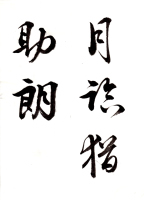 月猶
助朗